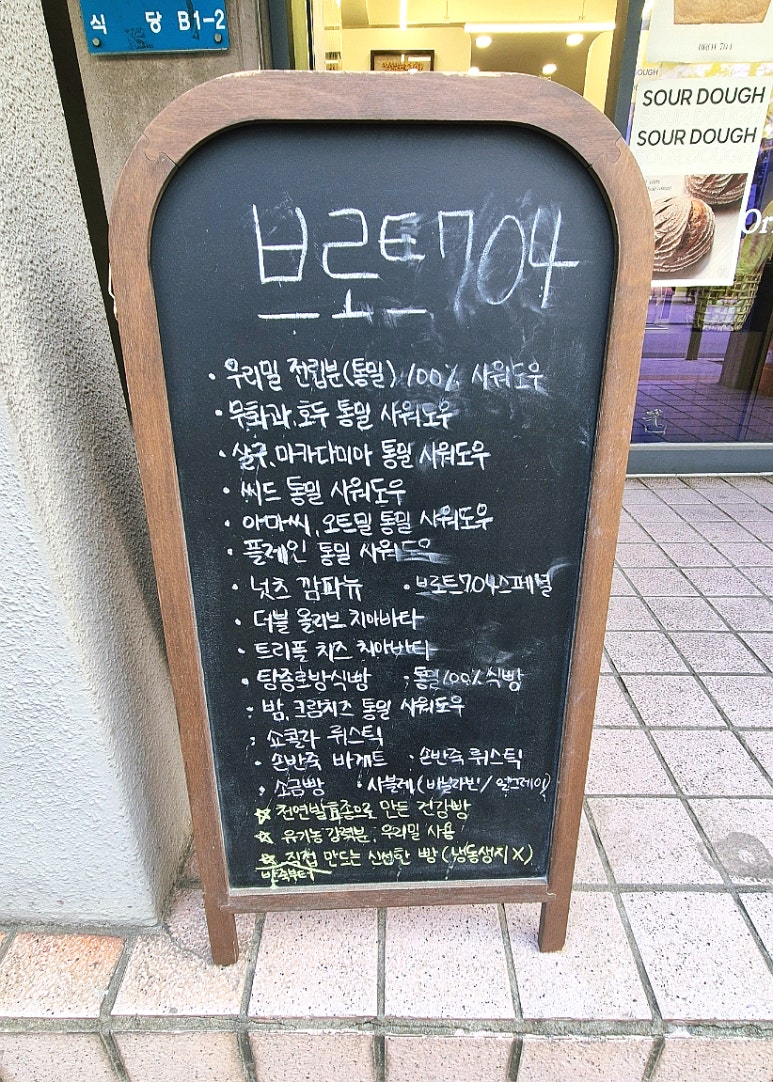 식 당 B1-2
BROT 704
SOUR DOUGH
SOUR DOUGH
브로트704
· 우리밀 전립분(통밀) 100% 사워도우
· 무화과, 호두 통밀 사워도우
· 살구, 마카다미아 통밀 사워도우
· 씨드 통밀 사워도우
· 아마씨, 오트밀 통밀 사워도우
· 플레인 통밀 사워도우
· 넛츠 깜파뉴 · 브로트704스페셜
· 더블 올리브 치아바타
· 트리플 치즈 치아바타
· 탕종호방식빵 · 통밀100% 식빵
· 밤, 크림치즈 통밀 사워도우
· 쇼콜라 뤼스틱
· 손반죽 바게트 · 손반죽 뤼스틱
· 소금빵 · 사블레(바닐라빈/얼그레이)
☆ 천연발효종으로 만든 건강빵
☆ 유기농강력분, 우리밀 사용
☆ 직접 만드는 신선한 빵(냉동생지X)
반죽부터